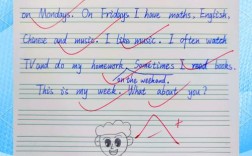 on Mondays. On Fridays I have maths, English,
Chinese and music. I like music. I often watch
TV and do my homework. Sometimes I read books
on the weekend.
This is my week. What about you?
A+